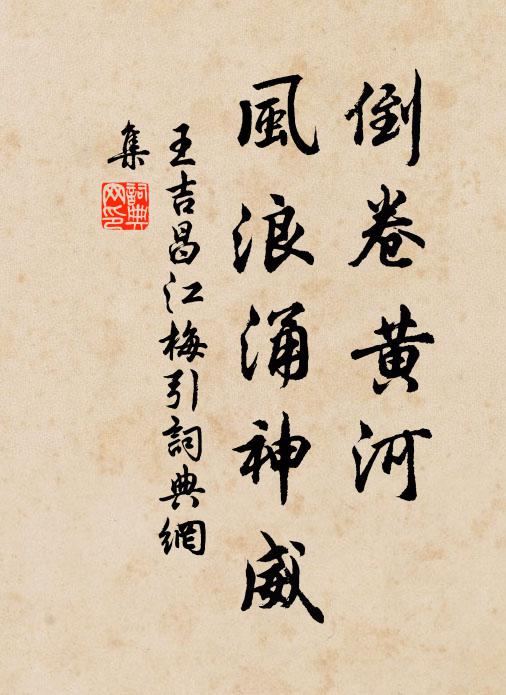 倒卷黄河
風浪涌神威
王吉昌江梅引詞典網
集
詞典
網印